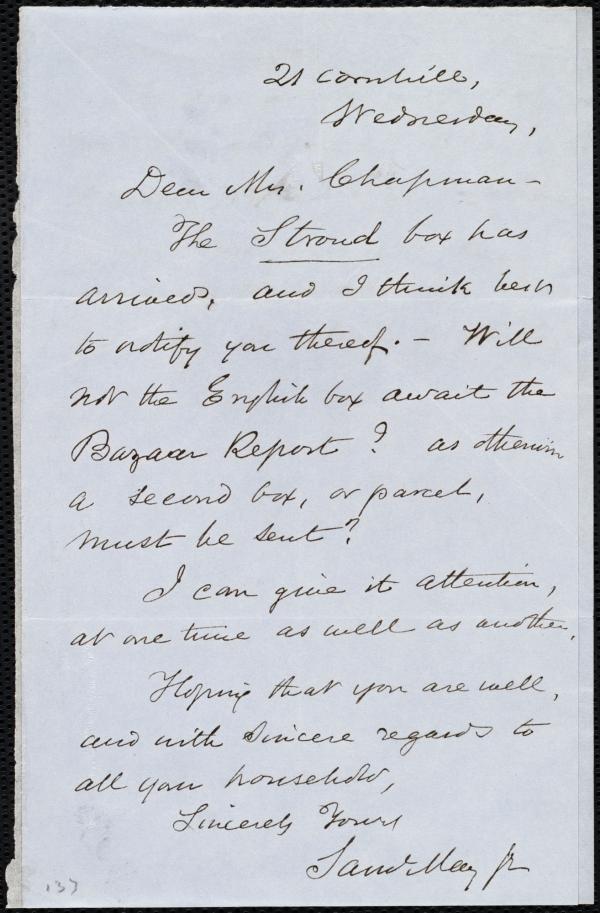 21 Cornhill,
Wednesday,
Dear Mrs. Chapman -
The Stroud box has
arrived, and I think best
to notify you thereof. - Will
not the English box await the
Bazaar Report? as otherwise
a second box, or parcel,
must be sent?
I can give it attention,
at one time as well as another.
Hoping that you are well,
and with sincere regards to
all your household,
Sincerely Yours
Saml May Jr
137